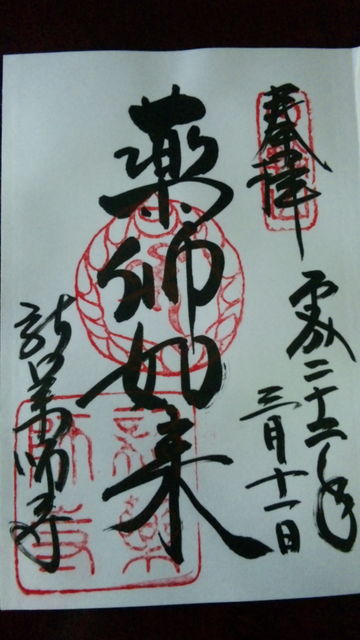 奉拝
平成二十六年
三月十一日
薬師如来
新薬師寺